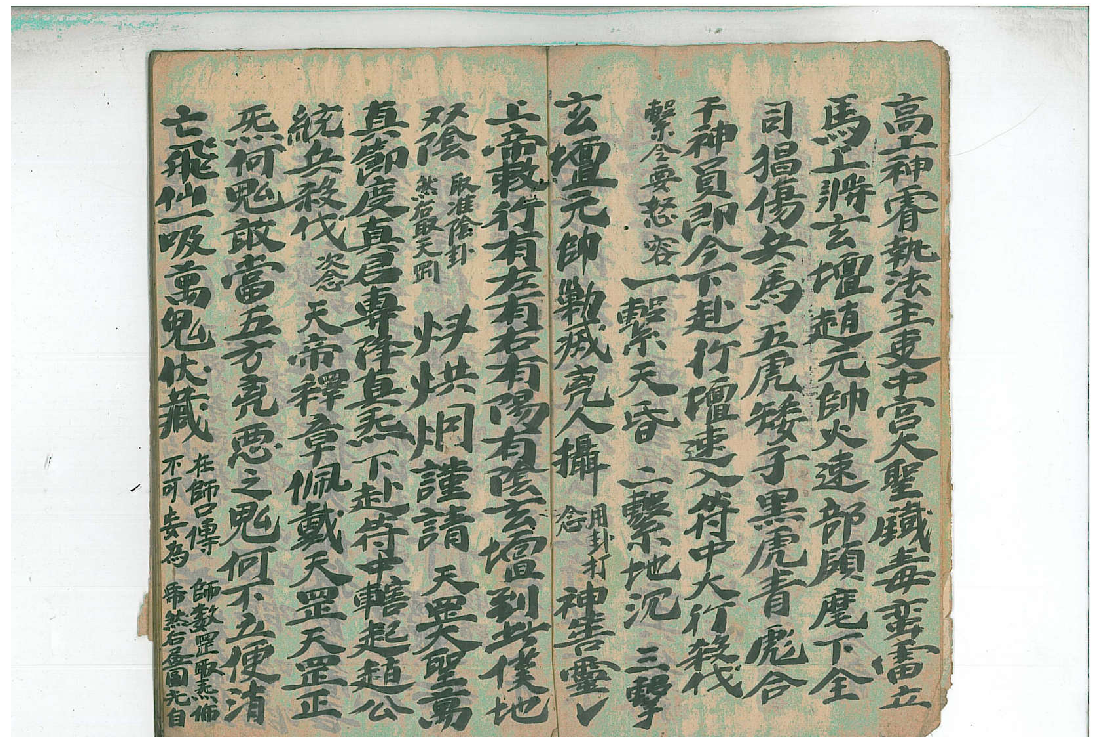 高上神霄執法主吏中宮大聖鐵毒雷立
馬上將玄壇趙元帥火速部領麾下全
司猖傷兵馬五虎矮子黑虎青彪合
干神員即今下赴行壇速入符中大行殺伐
擊令要怒容 一擊天昏 二擊地沉 三擊
玄壇元帥勅滅亮人攝 用卦打念 神書靈
上帝敕行有左有右有陽有陰玄壇到此僕地
双陰 取准陰卦 然后取天罡 烘炯謹請 天罡大聖
真節度真君專降真炁下赴符中轄起趙公
統兵殺伐 次念 天帝釋章佩戴天罡天罡正
炁何鬼敢當五方亮惡之鬼何不立便消
亡飛仙一吸萬鬼伏藏 在師口傳 不可妄為 師數罡取炁 然右